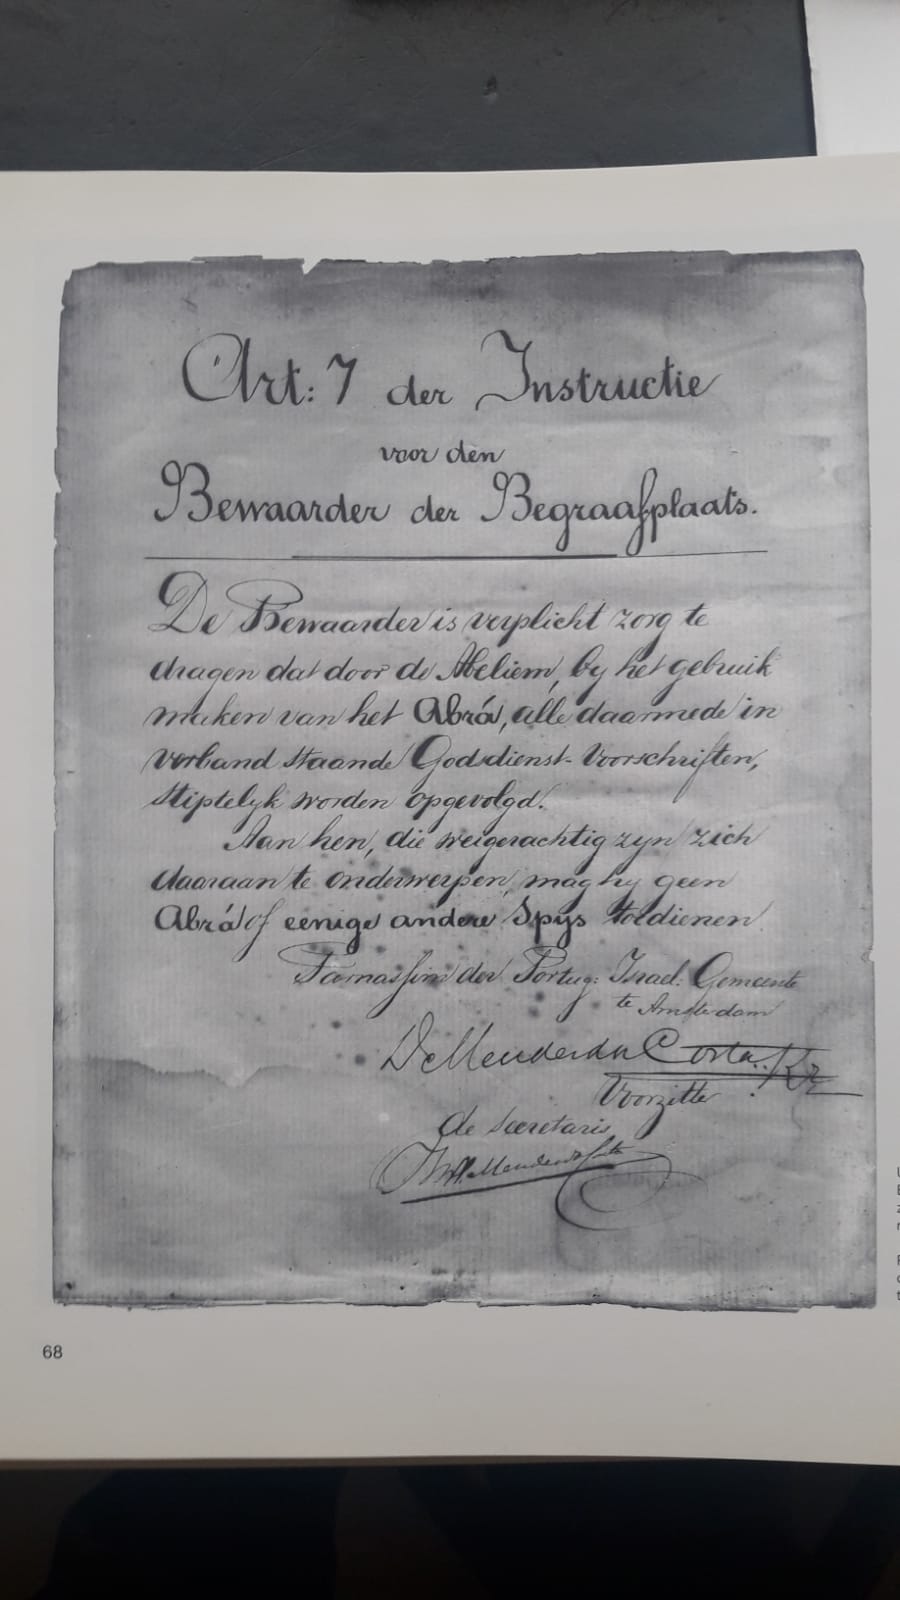 Art: 7 der Instructie
voor den
Bewaarder der Begraafplaats.
De Bewaarder is verplicht zorg te
dragen dat door de Abeliem, by het gebruik
maken van het Abrá, alle daarmede in
verband staande Godsdienst-Voorschriften,
stiptelyk worden opgevolgd.
Aan hen, die weigerachtig zyn zich
daaraan te onderwerpen, mag hy geen
Abrá of eenige andere Spys toedienen.
Parnassim der Portug: Israel: Gemeente
te Amsterdam
Costa
Voorzitter
de Secretaris
68